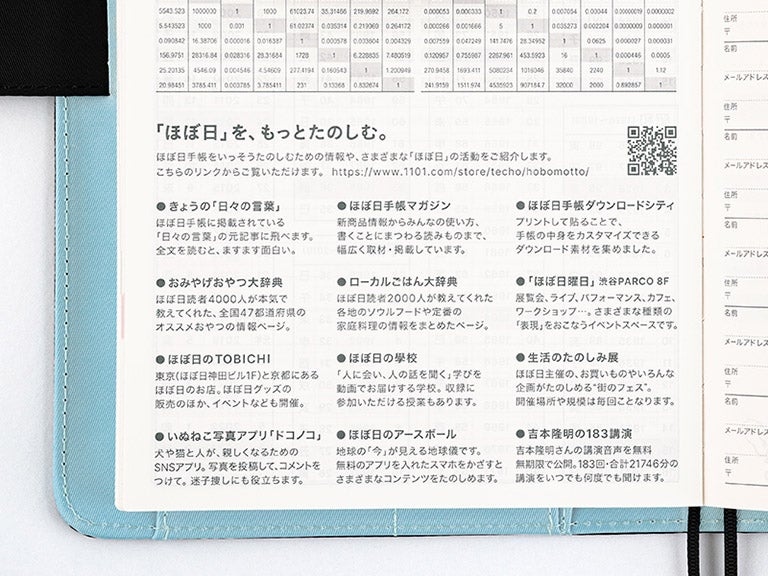 5543.523 1000000 1 1000 61023.74 35.31466 219.9692 264.172
5.543523 1000 0.001 1 61.02374 0.035314 0.219969 0.264172
0.090842 16.38706 0.000016 0.016387 1 0.000578 0.003604 0.004328
156.9751 28316.84 0.028316 28.31684 1728 1 6.228835 7.480519
25.20135 4546.09 0.004546 4.54609 277.4194 0.160543 1 1.200949
20.98451 3785.411 0.003785 3.785411 231 0.13368 0.832674 1
「ほぼ日」を、もっとたのしむ。
ほぼ日手帳をいっそうたのしむための情報や、さまざまな「ほぼ日」の活動をご紹介します。
こちらのリンクからご覧いただけます。 https://www.1101.com/store/techo/hobomotto/
● きょうの「日々の言葉」
ほぼ日手帳に掲載されている
「日々の言葉」の元記事に飛べます。
全文を読むと、ますます面白い。
● ほぼ日手帳マガジン
新商品情報からみんなの使い方、
書くことにまつわる読みものまで、
幅広く取材・掲載しています。
● ほぼ日手帳ダウンロードシティ
プリントして貼ることで、
手帳の中身をカスタマイズできる
ダウンロード素材を集めました。
● おみやげおやつ大辞典
ほぼ日読者4000人が本気で
教えてくれた、全国47都道府県の
オススメおやつの情報ページ。
● ローカルごはん大辞典
ほぼ日読者2000人が教えてくれた
各地のソウルフードや定番の
家庭料理の情報をまとめたページ。
● 「ほぼ日曜日」 渋谷PARCO 8F
展覧会、ライブ、パフォーマンス、カフェ、
ワークショップ…。さまざまな種類の
「表現」をおこなうイベントスペースです。
● ほぼ日のTOBICHI
東京(ほぼ日神田ビル1F)と京都にある
ほぼ日のお店。ほぼ日グッズの
販売のほか、イベントなども開催。
● ほぼ日の學校
「人に会い、人の話を聞く」学びを
動画でお届けする学校。収録に
参加いただける授業もあります。
● 生活のたのしみ展
ほぼ日主催の、お買いものやいろんな
企画がたのしめる“街のフェス”。
開催場所や規模は毎回ことなります。
● いぬねこ写真アプリ「ドコノコ」
犬や猫と人が、親しくなるための
SNSアプリ。写真を投稿して、コメントを
つけて。迷子捜しにも役立ちます。
● ほぼ日のアースボール
地球の「今」が見える地球儀です。
無料のアプリを入れたスマホをかざすと
さまざまなコンテンツをたのしめます。
● 吉本隆明の183講演
吉本隆明さんの講演音声を無料
無期限で公開。183回・合計21746分の
講演をいつでも何度でも聞けます。
住所
〒
名前
メールアドレス
住所
〒
名前
メールアドレス
住所
〒
名前
メールアドレス
住所
〒
名前
メールアドレス
住所
〒
名前
メールアドレス
住所
〒